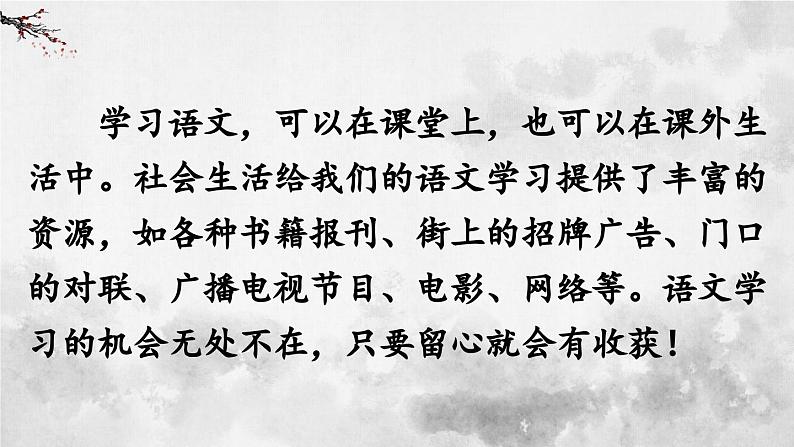 学习语文，可以在课堂上，也可以在课外生
活中。社会生活给我们的语文学习提供了丰富的
资源，如各种书籍报刊、街上的招牌广告、门口
的对联、广播电视节目、电影、网络等。语文学
习的机会无处不在，只要留心就会有收获！